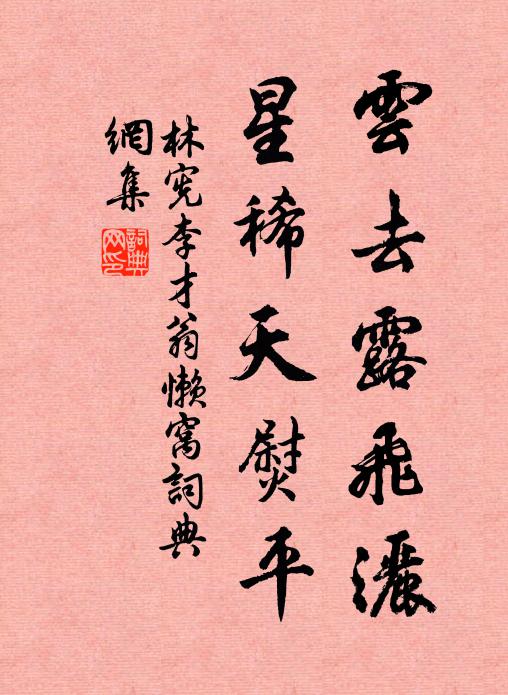 雲去露飛灑
星稀天熨平
林宪李才翁懒窩詞典
網集
詞典網印